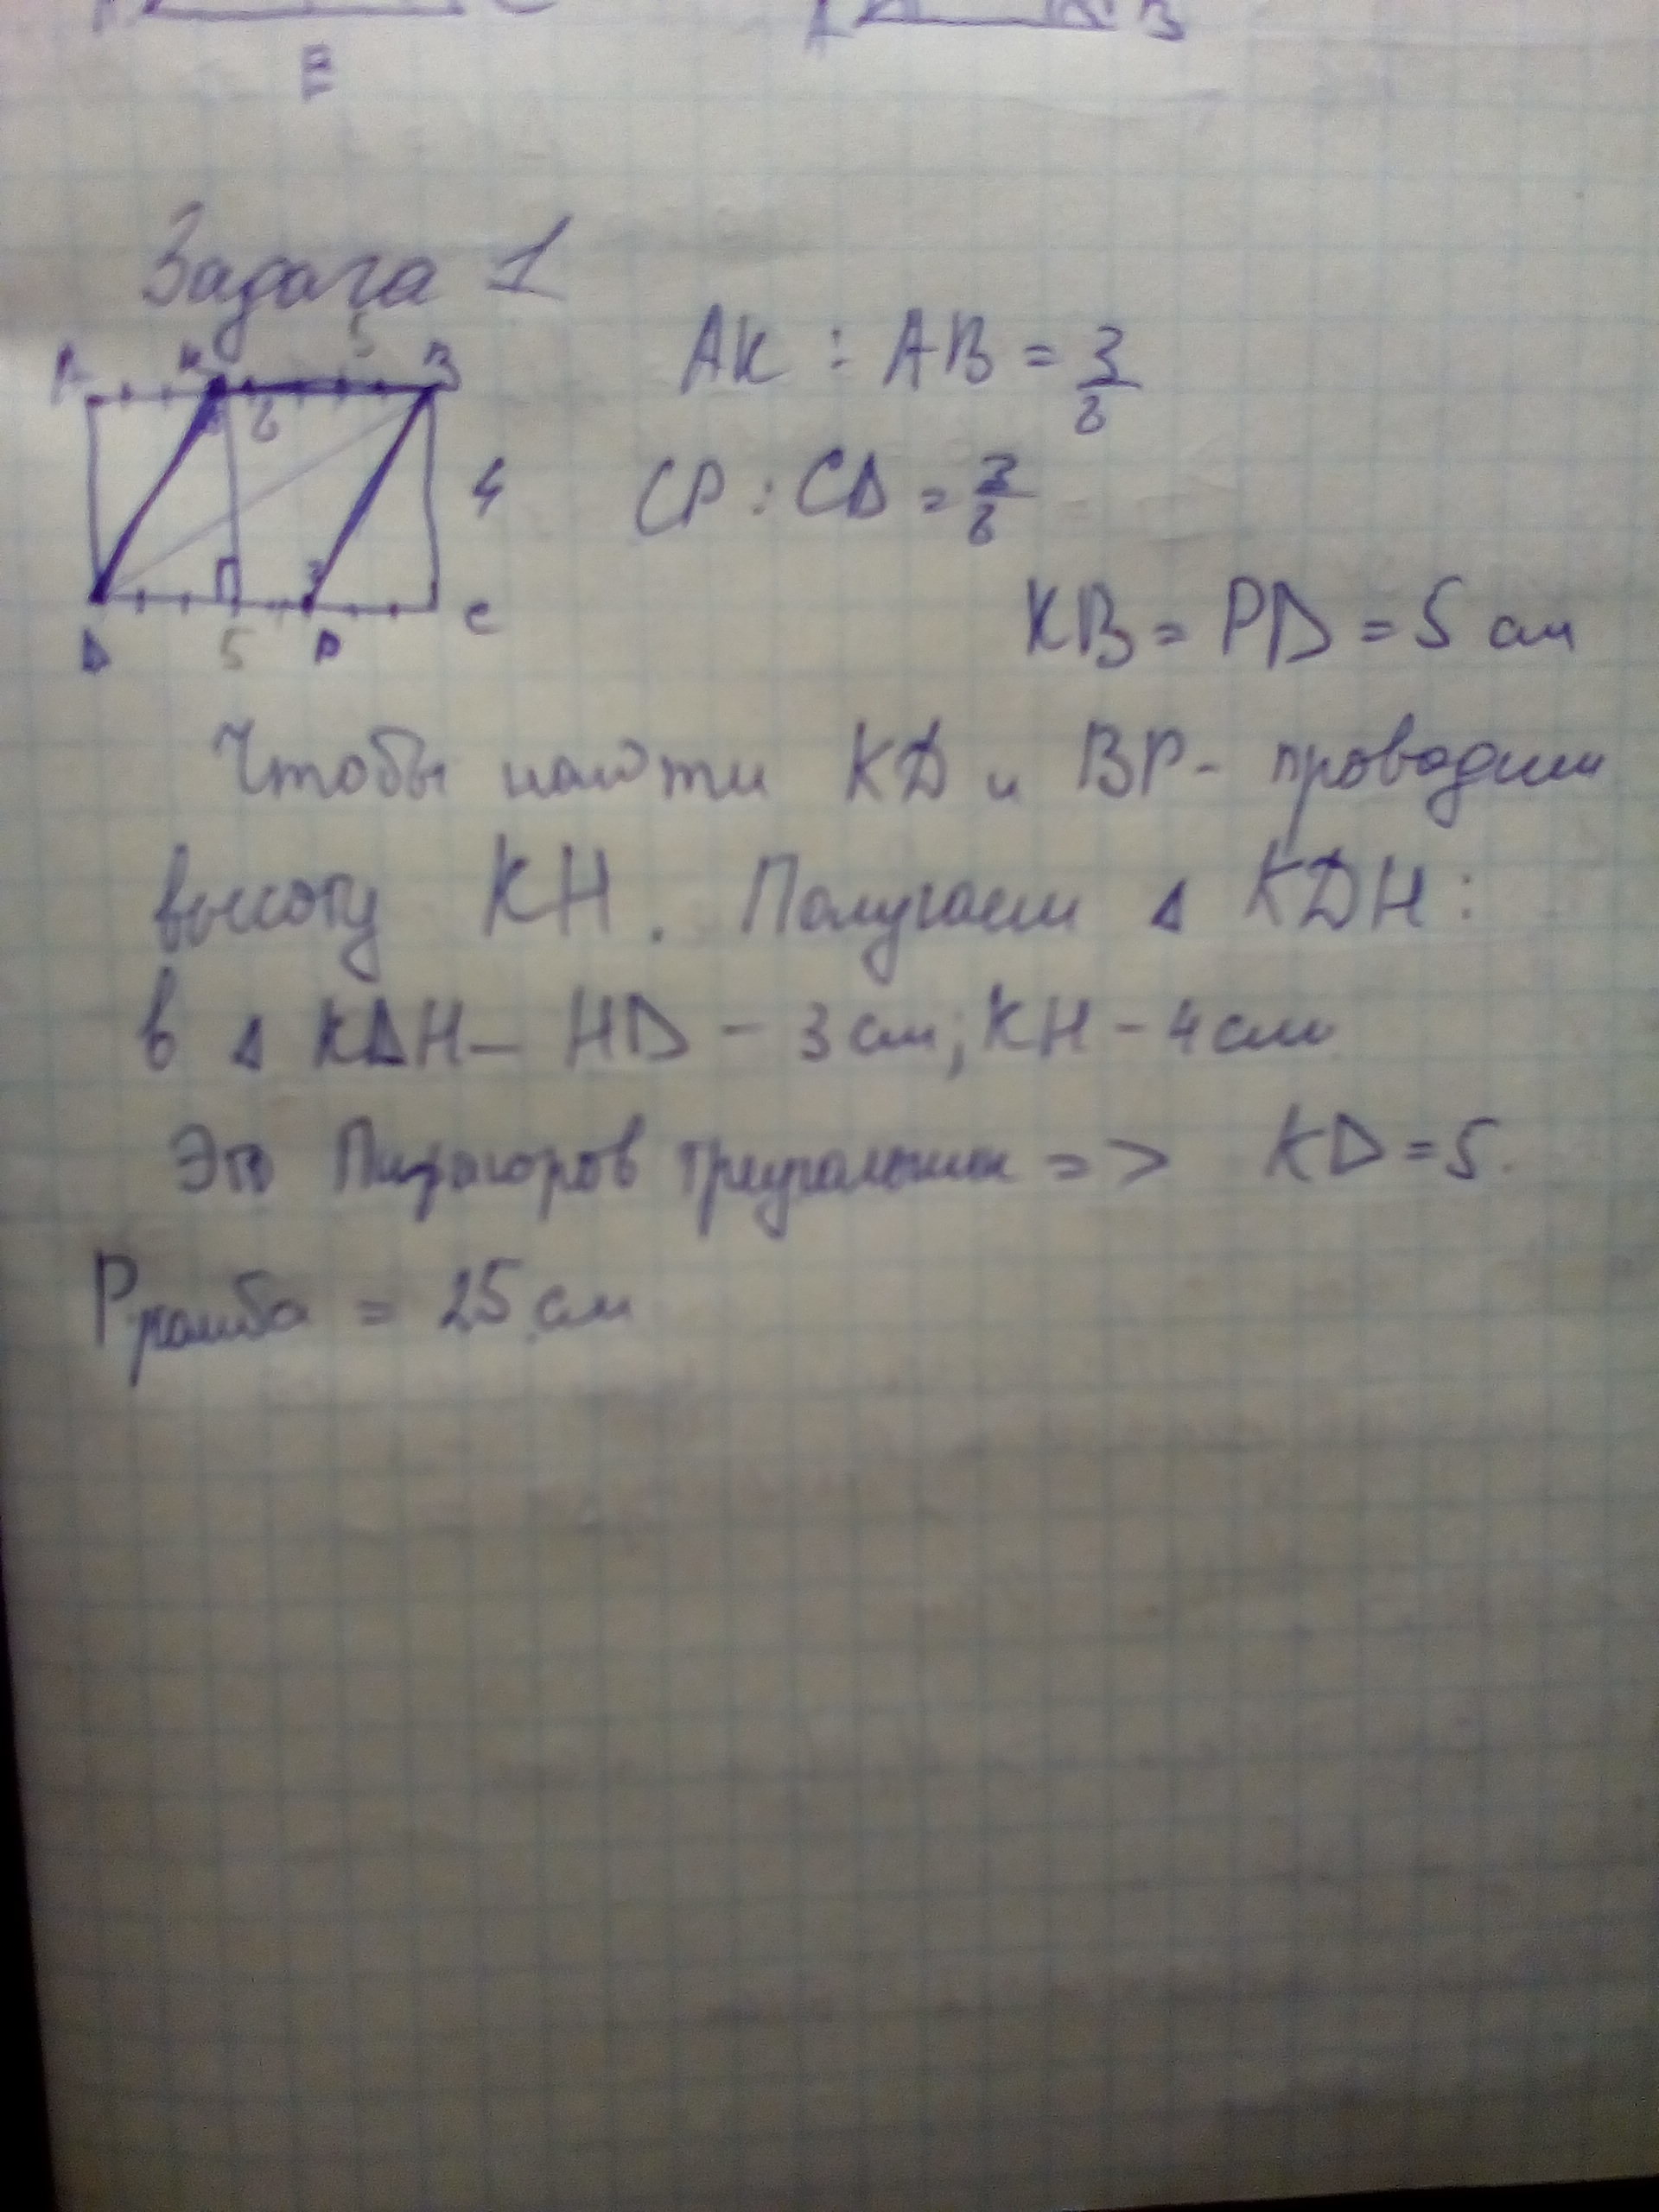 E
B
Задача 1
5
A K B
8
4
D 5 P C
AK : AB = 3/8
CP : CD = 3/8
KB = PD = 5 см
Чтобы найти KD и BP - проводим
высоту KH. Получаем Δ KDH:
в Δ KDH - HD - 3 см; KH - 4 см
Это Пифагоров треугольник => KD = 5.
Pромба = 25 см